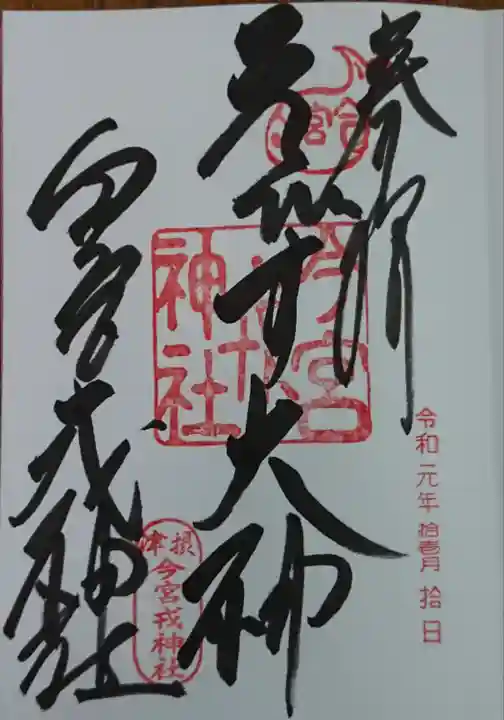 奉拝
ゑびす大神
今宮戎神社
今宮
今宮戎神社
令和元年拾壹月拾日
摂津
今宮戎神社